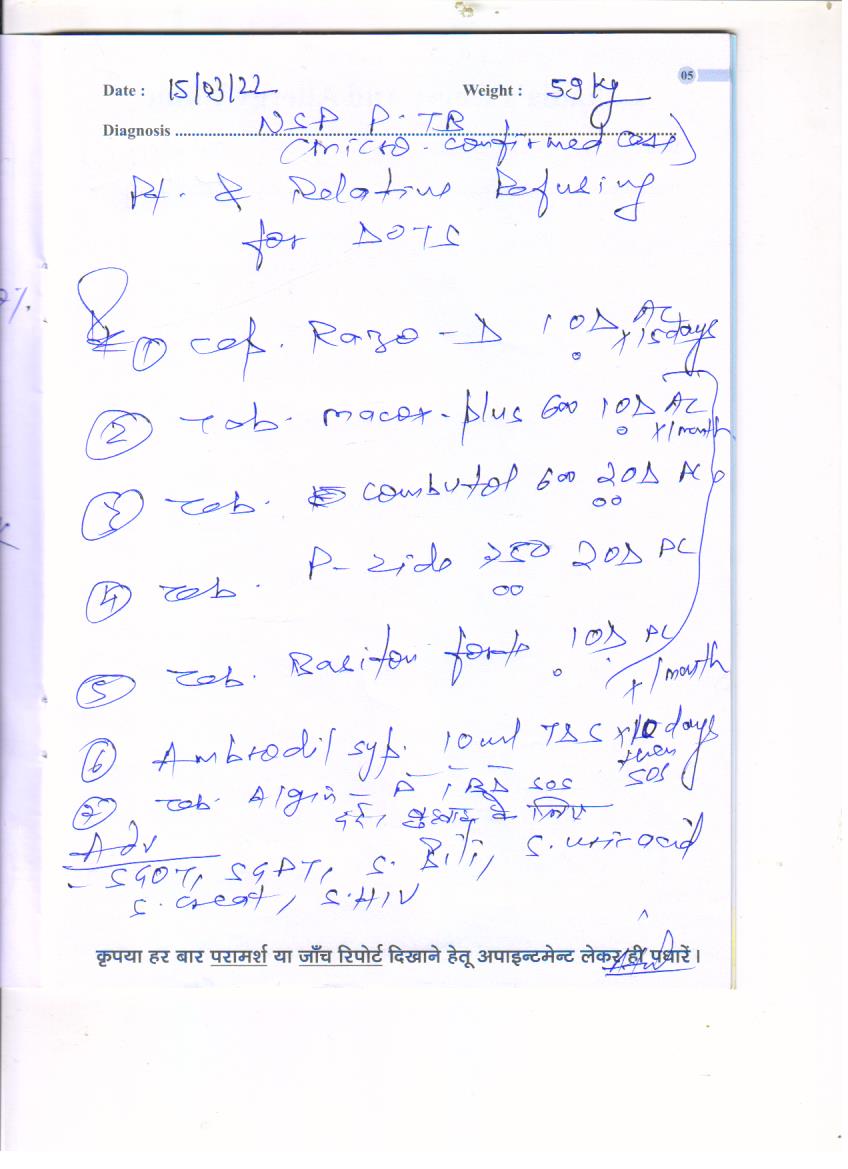 05
Date : 15/03/22 Weight : 59 kg
Diagnosis NSP P. TB
(Micro. confirmed case)
Pt. & Relative Refusing
for DOTS
① cap. Razo - D 1 OD AC x 15 days
② Tab. macox - plus 600 1 OD AC x 1 month
③ Tab. combutol 600 2 OD AC
④ Tab. P-zide 750 2 OD PC
⑤ Tab. forte 1 OD PC x 1 month
⑥ Ambrodil syp. 10 ml TDS x 10 days then SOS
⑦ Tab. Algin - D 1 BD SOS
दर्द, बुखार के लिए
Adv
- SGOT, SGPT, S. Bili, S. uric acid
S. creat, S. HIV
कृपया हर बार परामर्श या जाँच रिपोर्ट दिखाने हेतू अपाइन्टमेन्ट लेकर ही पधारें ।